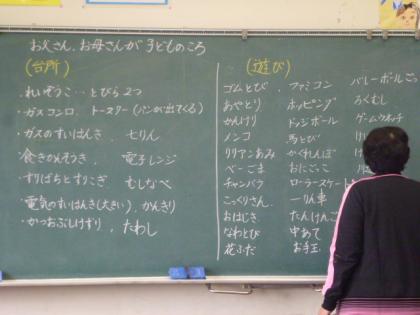 お父さん、お母さんが子どものころ
(台所)
れいぞうこ…とびら2つ
・ガスコンロ、トースター(パンが出てくる)
・ガスのすいはんき、七りん
・電子レンジ
・すりばちとすりこぎ、むしなべ
・電気のすいはんき(大きい)、かんきり
・かつおぶしけずり、たわし
(遊び)
ゴムとび、ファミコン バレーボール
あやとり ホッピング ろくむし
かんけり ドッジボール ゲームウォッチ
メンコ 馬とび
リリアンあみ かくれんぼ
べーごま おにごっこ
チャンバラ ローラースケート
こっくりさん 一りん車
おはじき たんけんご
なわとび 中あて
花ふだ お手玉